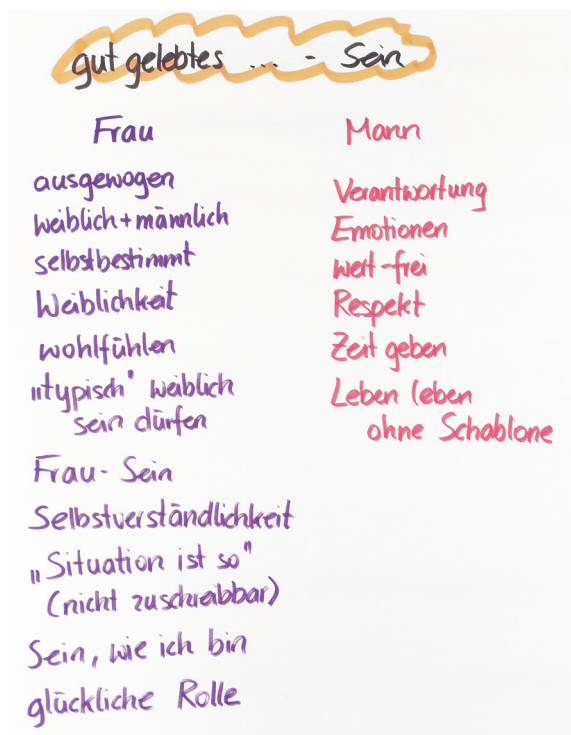 gut gelebtes ... - Sein
Frau
ausgewogen
weiblich + männlich
selbstbestimmt
Weiblichkeit
wohlfühlen
"typisch" weiblich
sein dürfen
Frau-Sein
Selbstverständlichkeit
"Situation ist so"
(nicht zuschreibbar)
Sein, wie ich bin
glückliche Rolle
Mann
Verantwortung
Emotionen
wert-frei
Respekt
Zeit geben
Leben leben
ohne Schablone